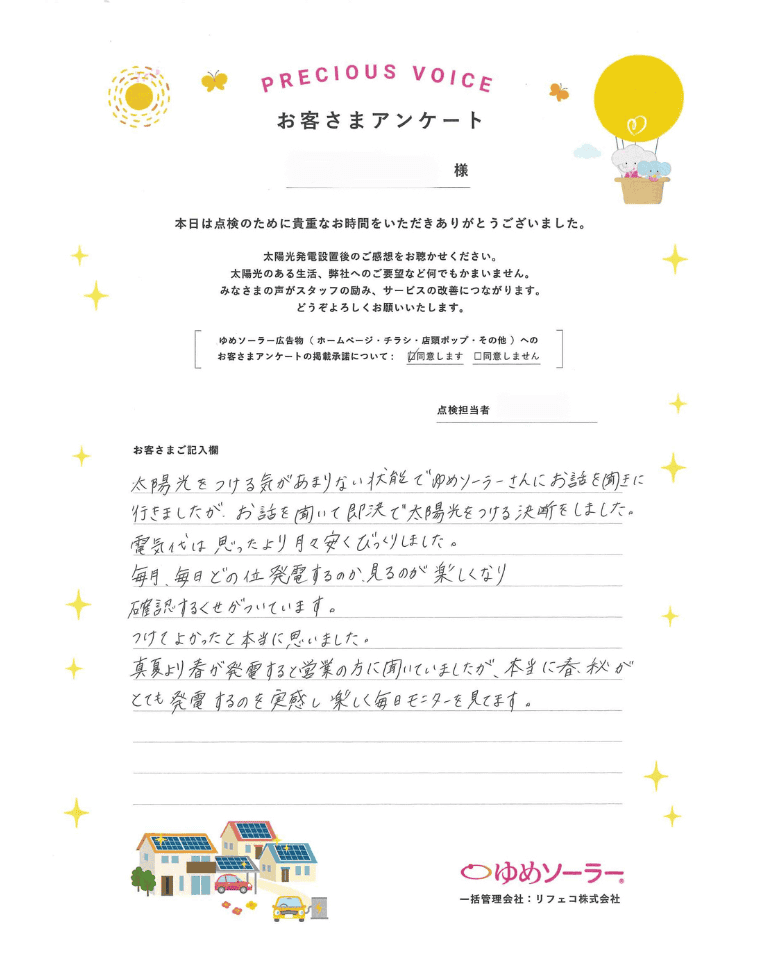 PRECIOUS VOICE
お客さまアンケート
様
本日は点検のために貴重なお時間をいただきありがとうございました。
太陽光発電設置後のご感想をお聴かせください。
太陽光のある生活、弊社へのご要望など何でもかまいません。
みなさまの声がスタッフの励み、サービスの改善につながります。
どうぞよろしくお願いいたします。
ゆめソーラー広告物（ ホームページ・チラシ・店頭ポップ・その他 ）への
お客さまアンケートの掲載承諾について： ☑同意します ☐同意しません
点検担当者
お客さまご記入欄
太陽光をつける気があまりない状態でゆめソーラーさんにお話を聞きに
行きましたが、お話を聞いて即決で太陽光をつける決断をしました。
電気代は思ったより月々安くびっくりしました。
毎月、毎日どの位発電するのか、見るのが楽しくなり
確認するくせがついています。
つけてよかったと本当に思いました。
真夏より春が発電すると営業の方に聞いていましたが、本当に春、秋が
とても発電するのを実感し楽しく毎日モニターを見てます。
ゆめソーラー®
一括管理会社：リフェコ株式会社